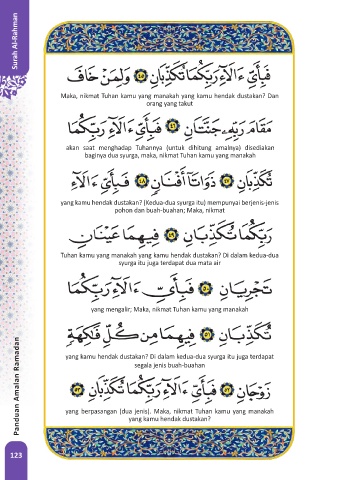 Surah Al-Rahman
فَبِأَيِّ ءَالَآءِ رَبِّكُمَا تُكَذِّبَانِ ٤٥ وَلِمَنْ خَافَ
Maka, nikmat Tuhan kamu yang manakah yang kamu hendak dustakan? Dan
orang yang takut
مَقَامَ رَبِّهِۦ جَنَّتَانِ ٤٦ فَبِأَيِّ ءَالَآءِ رَبِّكُمَا
akan saat menghadap Tuhannya (untuk dihitung amalnya) disediakan
baginya dua syurga, maka, nikmat Tuhan kamu yang manakah
تُكَذِّبَانِ ٤٧ ذَوَاتَآ أَفْنَانٍ ٤٨ فَبِأَيِّ ءَالَآءِ
yang kamu hendak dustakan? (Kedua-dua syurga itu) mempunyai berjenis-jenis
pohon dan buah-buahan; Maka, nikmat
رَبِّكُمَا تُكَذِّبَانِ ٤٩ فِيهِمَا عَيْنَانِ
Tuhan kamu yang manakah yang kamu hendak dustakan? Di dalam kedua-dua
syurga itu juga terdapat dua mata air
تَجْرِيَانِ ٥٠ فَبِأَيِّ ءَالَآءِ رَبِّكُمَا
yang mengalir; Maka, nikmat Tuhan kamu yang manakah
تُكَذِّبَانِ ٥١ فِيهِمَا مِن كُلِّ فَٰكِهَةٍ
yang kamu hendak dustakan? Di dalam kedua-dua syurga itu juga terdapat
segala jenis buah-buahan
زَوْجَانِ ٥٢ فَبِأَيِّ ءَالَآءِ رَبِّكُمَا تُكَذِّبَانِ ٥٣
yang berpasangan (dua jenis). Maka, nikmat Tuhan kamu yang manakah
yang kamu hendak dustakan?
Panduan Amalan Ramadan
123